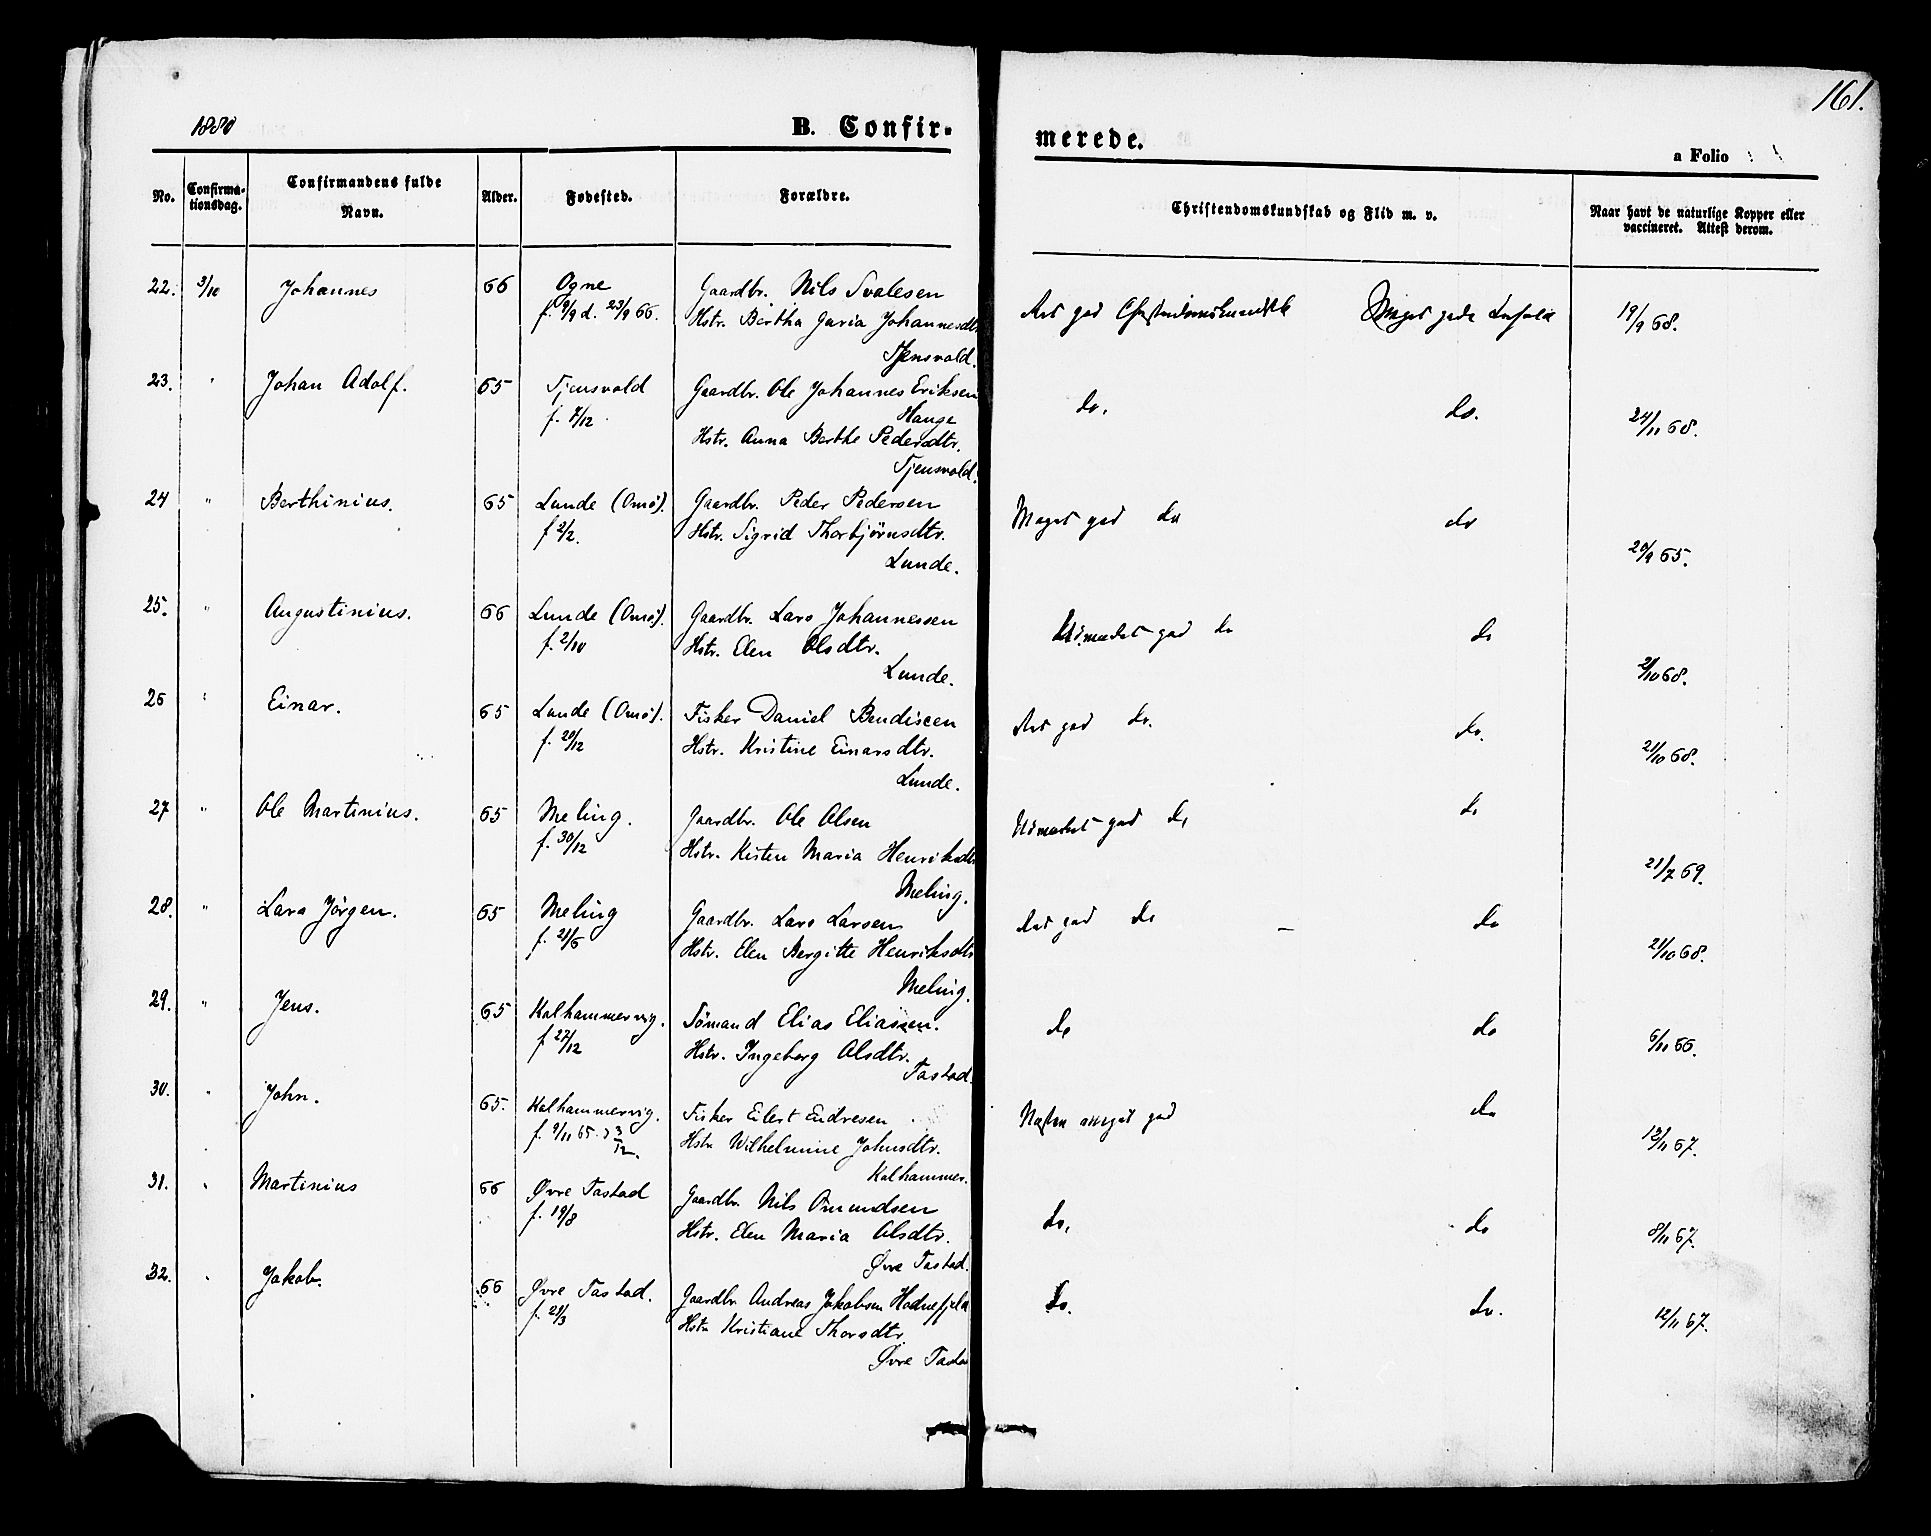 161.
1880
B. Confir-
merede.
a Folio
No.
Confirma-
tionsdag.
Confirmandens fulde
Navn.
Alder.
Fødested.
Forældre.
Christendomskundskab og Flid m. v.
Naar havt de naturlige Kopper eller
vaccineret. Attest derom.
22. 3/10 Johannes 66 Ogne Gaardbr. Nils Svalesen
f. 9/9 d. 23/9 66. Hstr. Bertha Johannesdtr.
god Meget gode 19/9 68.
Tjensvold.
23. " Johan Adolf. 65 Tjensvold Gaardbr. Ole Johannes Eriksen
f. 7/12. Hauge
do. do. 24/11 68.
Hstr. Anna Berthe Pedersdtr.
Tjensvold.
24 " Berthinius. 65 Lunde (Omø). Gaardbr. Peder Pedersen
f 2/2. Hstr. Sigrid Thorbjørnsdtr.
Meget god do do 20/9 65.
Lunde.
25. " Augustinius. 66 Lunde (Omø). Gaardbr. Lars Johannessen
f. 2/10 Hstr. Elen Olsdtr.
Udmærket god do do 2/10 68.
Lunde.
26 " Einar. 65 Lunde (Omø). Fisker Daniel Bendixen
f. 20/12 Hstr. Kristine Einarsdtr.
god do. do. 21/10 68.
Lunde.
27 " Ole Martinius. 65 Meling. Gaardbr. Ole Olsen
f. 30/12 Hstr. Kisten Maria Henriksdtr
Udmærket god do do 21/7 69.
Meling.
28. " Lars Jørgen. 65 Meling Gaardbr. Lars Larsen
f. 21/6 Hstr. Elen Bergitte Henriksdtr
god do – do 21/10 68.
Meling.
29. " Jens. 65 Kalhammervig. Sømand Elias Eliassen.
f 27/12 Hstr. Ingeborg Olsdtr.
do do 6/11 66.
Tastad.
30. " John. 65. Kalhammervig. Fisker Eilert Endresen
f. 9/11 65. 3/12. Hstr. Wilhelmine Johnsdtr.
Næsten meget god do 13/11 67.
Kalhammer.
31. " Martinius 66 Øvre Tastad Gaardbr. Nils Omundsen
f. 19/8 Hstr. Elen Maria Olsdtr.
do. do 8/11 67.
Øvre Tastad.
32. " Jakob. 66 Øvre Tastad. Gaardbr. Andreas Jakobsen Hodnefjeld
f. 21/3 Hstr. Kristiane Thorsdtr.
do. do. 12/11 67.
Øvre Tastad